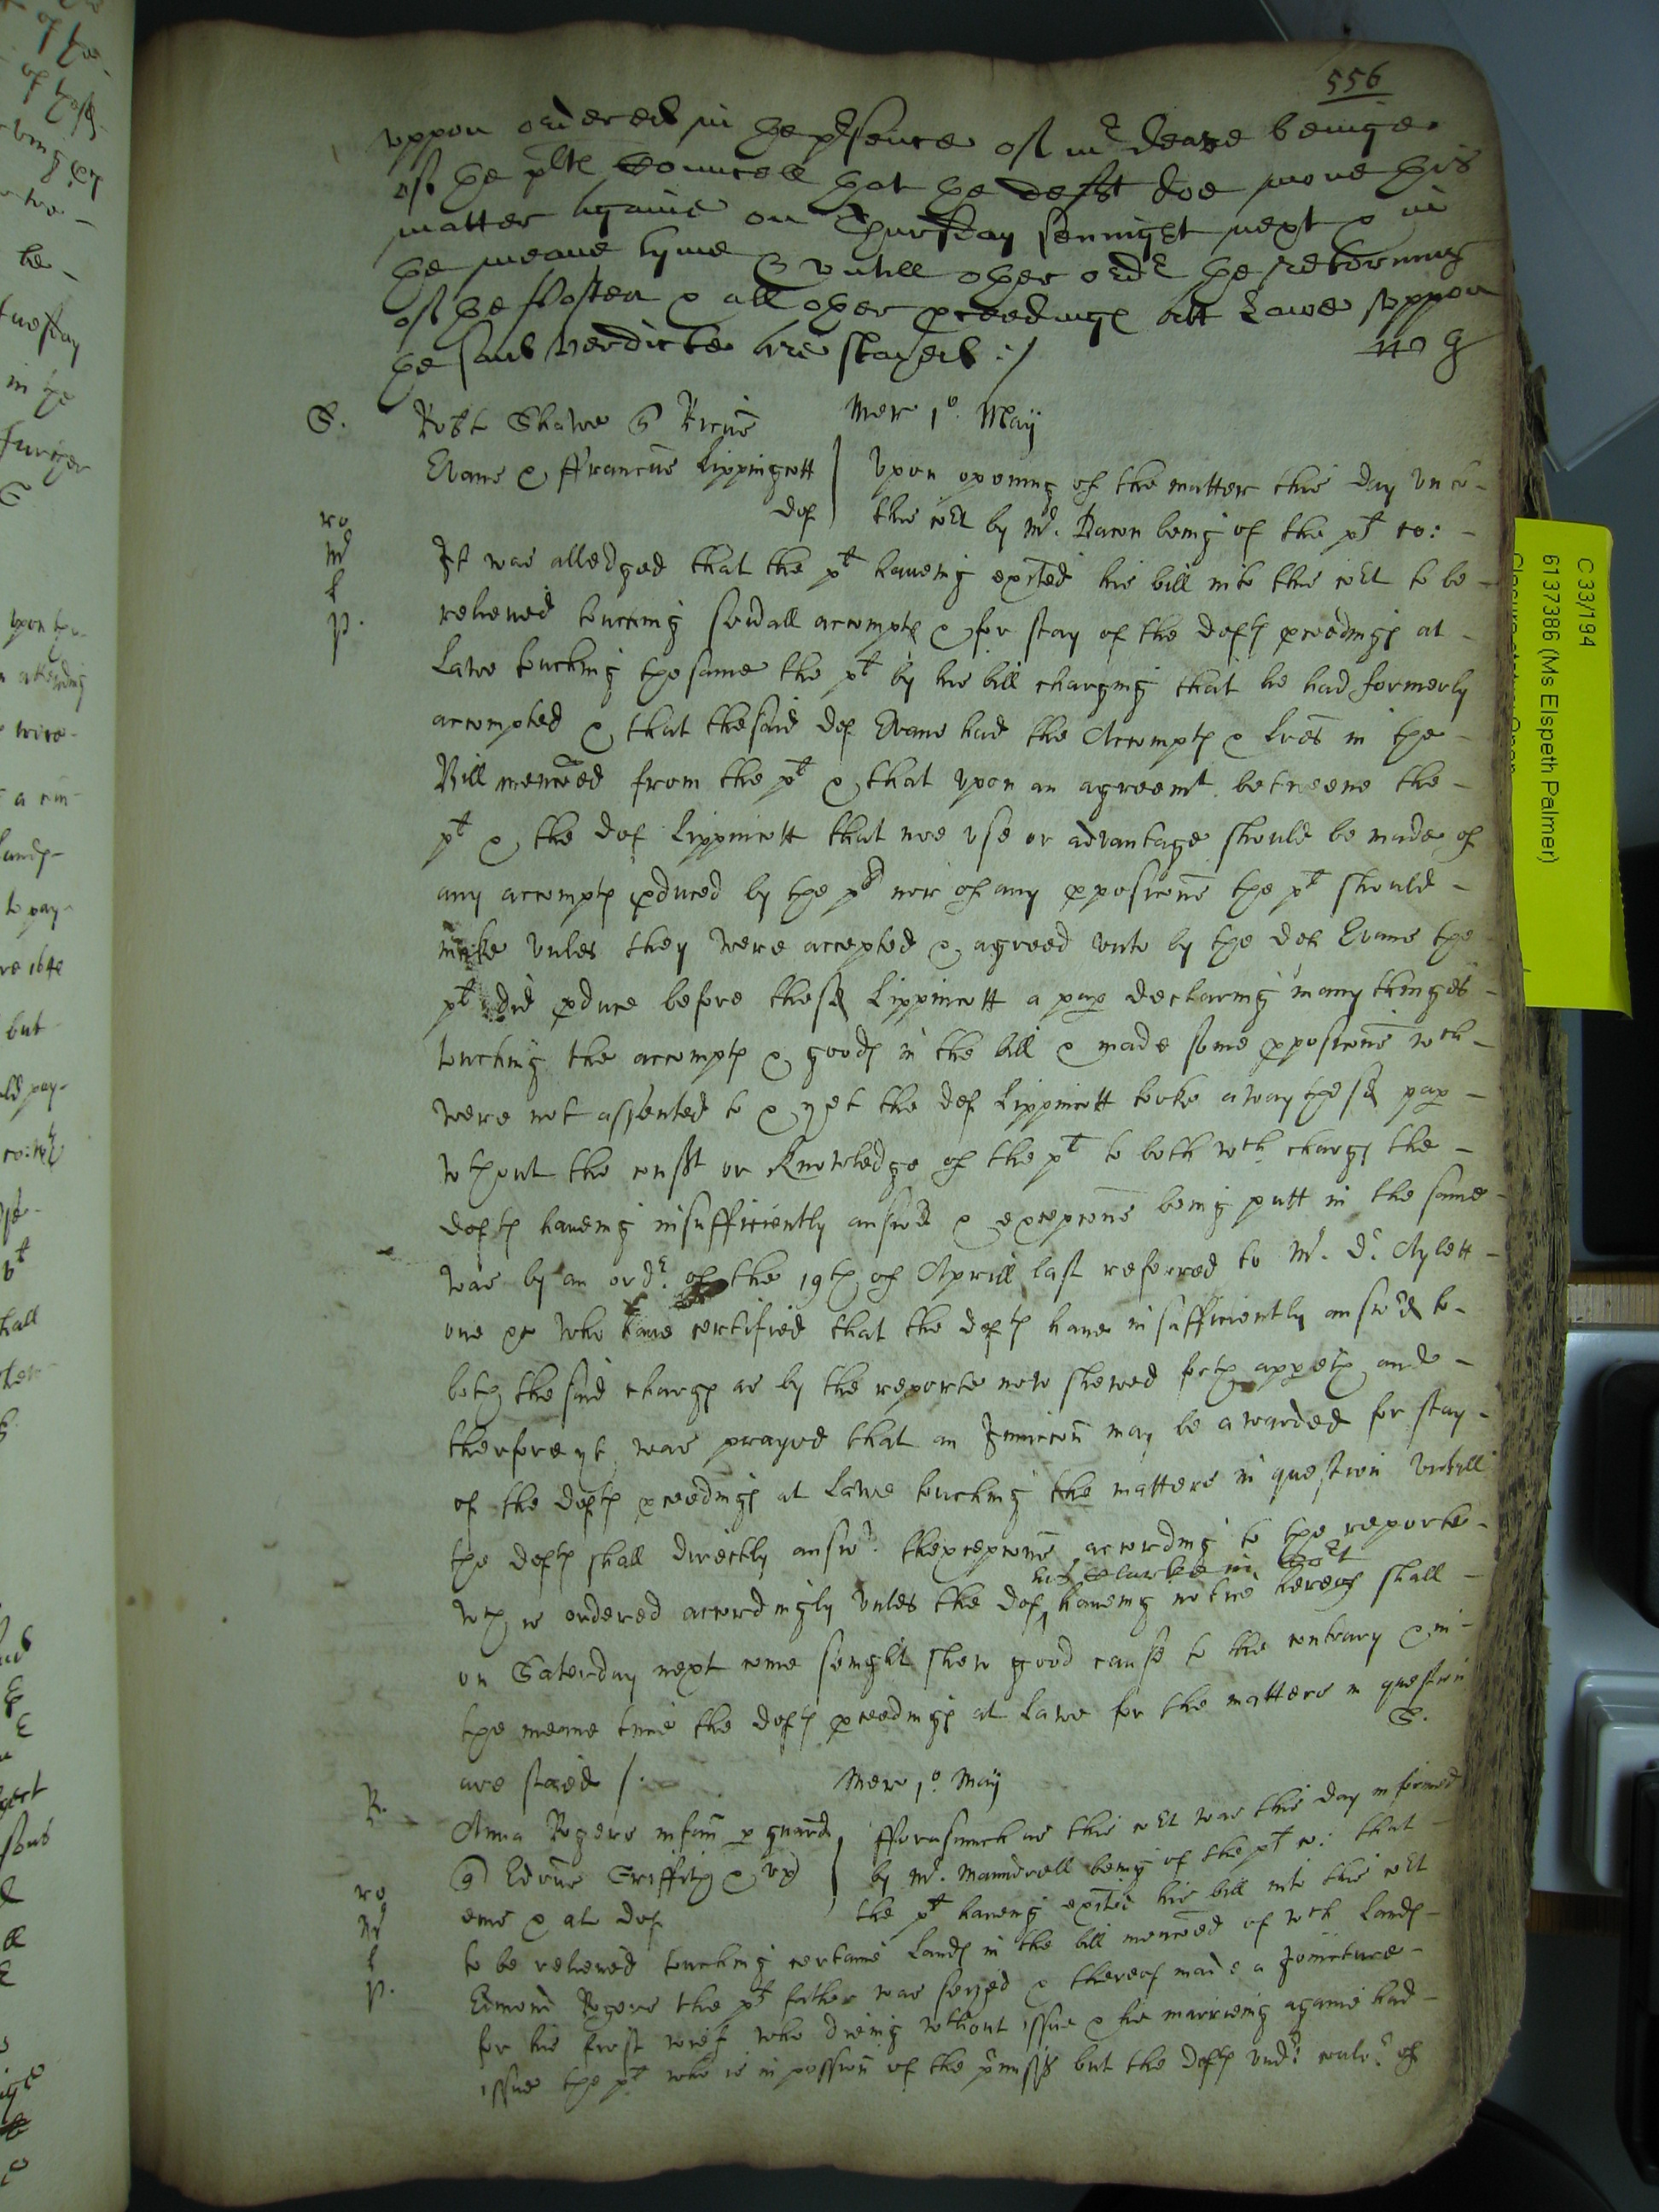 556
vppon ordered in the p̱sence of mr Deane beinge
of the plts Councell that the deft doe move this
matter againe on Thursday sennight next & in
the meane tyme & vntill other ordr the retorninge
of the Postea & all other p̱ceedings att Lawe vppon
the said Verdicte are stayed :/
S.
Robt Shawe q Ricus
Mer 1o. May
Evans & ffranciscus Lippingcott
def
Vpon opening of the matter this day vnto
this cort by Mr. Bacon being of the plt co:
ro
Mr
l
p.
It was alledged that the plt haueing exited his bill into this cort to be
releiued touching seu'all accompts & for stay of the defts p̱ceedings at
Lawe touching the same the plt by his bill charging that he had formerly
accompted & that the said def Evans had the Accompts & lr̄es in the
Bill menc̄oed from the plt & that vpon an agreemt betweene the
plt & the def Lippincott that noe vse or advantage should be made of
any accompts p̱duced by the plt nor of any p̱posic̄ons the plt should
make vnles they were accepted & agreed vnto by the def Evans the
plt did p̱duce before the sd Lippincott a pap̱ declaring many thinges
touching the accompts & goods in the bill & made some p̱posic̄ons wch
were not assented to & yet the def Lippincott tooke away the sd pap̱
wthout the consẗ or knowledge of the plt to both wch charges the
defts haueing insufficiently answ'd & excepc̄ons being putt in the same
was by an ordr. of the 19th of Aprill last referred to Mr. Dr. Aylett
one &c who haue certified that the defts haue insufficiently answ'd to
both the said charges as by the reporte now shewed forth app̱eth and
therfore yt was prayed that an Iniuncc̄on may be awarded for stay
of the defts p̱ceedings at Lawe touching the matters in question vntill
the defts shall directly answr. thexcepc̄ons according to the reporte
his Clarke in Cort
wch is ordered accordingly vnles the def haueing notice hereof shall
on Saterday next come senght shew good cause to the contrary & in
the meane time the defts p̱ceedings at Lawe for the matters in question
are staied /.
S.
R.
Mer 1o May
Anna Rogers infan p̱ guard
q Edrus Griffith & vx
eius & al def
fforasmuch as this cort was this day informed
by Mr. Maundrell being of the plt co: that
the plt haueing exited his bill into this cort
ro
Mr
l
p.
to be releiued touching certaine Lands in the bill menc̄oed of wch Lands
Edmond Rogers the plts father was seized & thereof made a Ioincture
for his first wief who dieing wthout issue & he marrieing againe had
issue the plt who is in possion of the p̱miss̄s but the defts vndr. coulor. of
C 33/194
6137386 (Ms Elspeth Palmer)